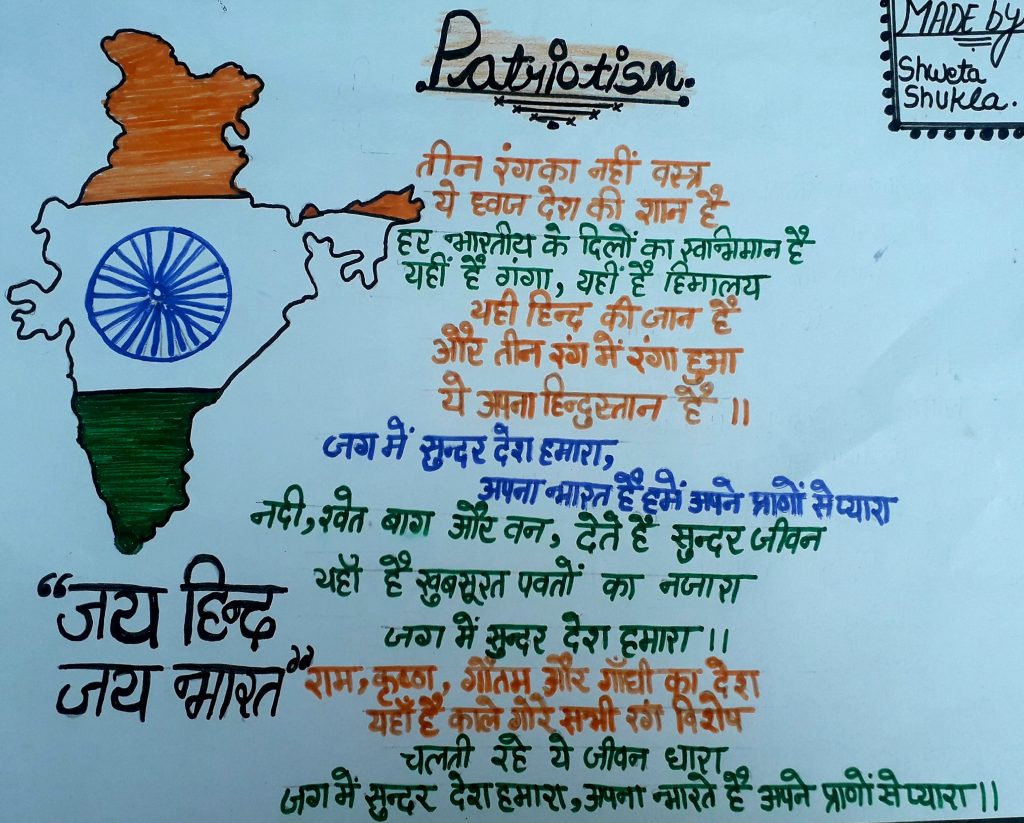 Patriotism.
MADE by
Shweta
Shukla.
तीन रंग का नहीं वस्त्र
ये ध्वज देश की शान है
हर भारतीय के दिलों का स्वाभिमान है
यहीं है गंगा, यहीं है हिमालय
यही हिन्द की जान है
और तीन रंग में रंगा हुआ
ये अपना हिन्दुस्तान है ||
जग में सुन्दर देश हमारा,
अपना भारत है हमें अपने प्राणों से प्यारा
नदी, खेत बाग और वन, देते हैं सुन्दर जीवन
यहाँ है खुबसूरत पवतों का नजारा
जग में सुन्दर देश हमारा ||
राम, कृष्ण, गौतम और गाँधी का देश
यहाँ है काले गोरे सभी रंग विशेष
चलती रहे ये जीवन धारा
जग में सुन्दर देश हमारा, अपना भारत है अपने प्राणों से प्यारा ||
“जय हिन्द
जय भारत”